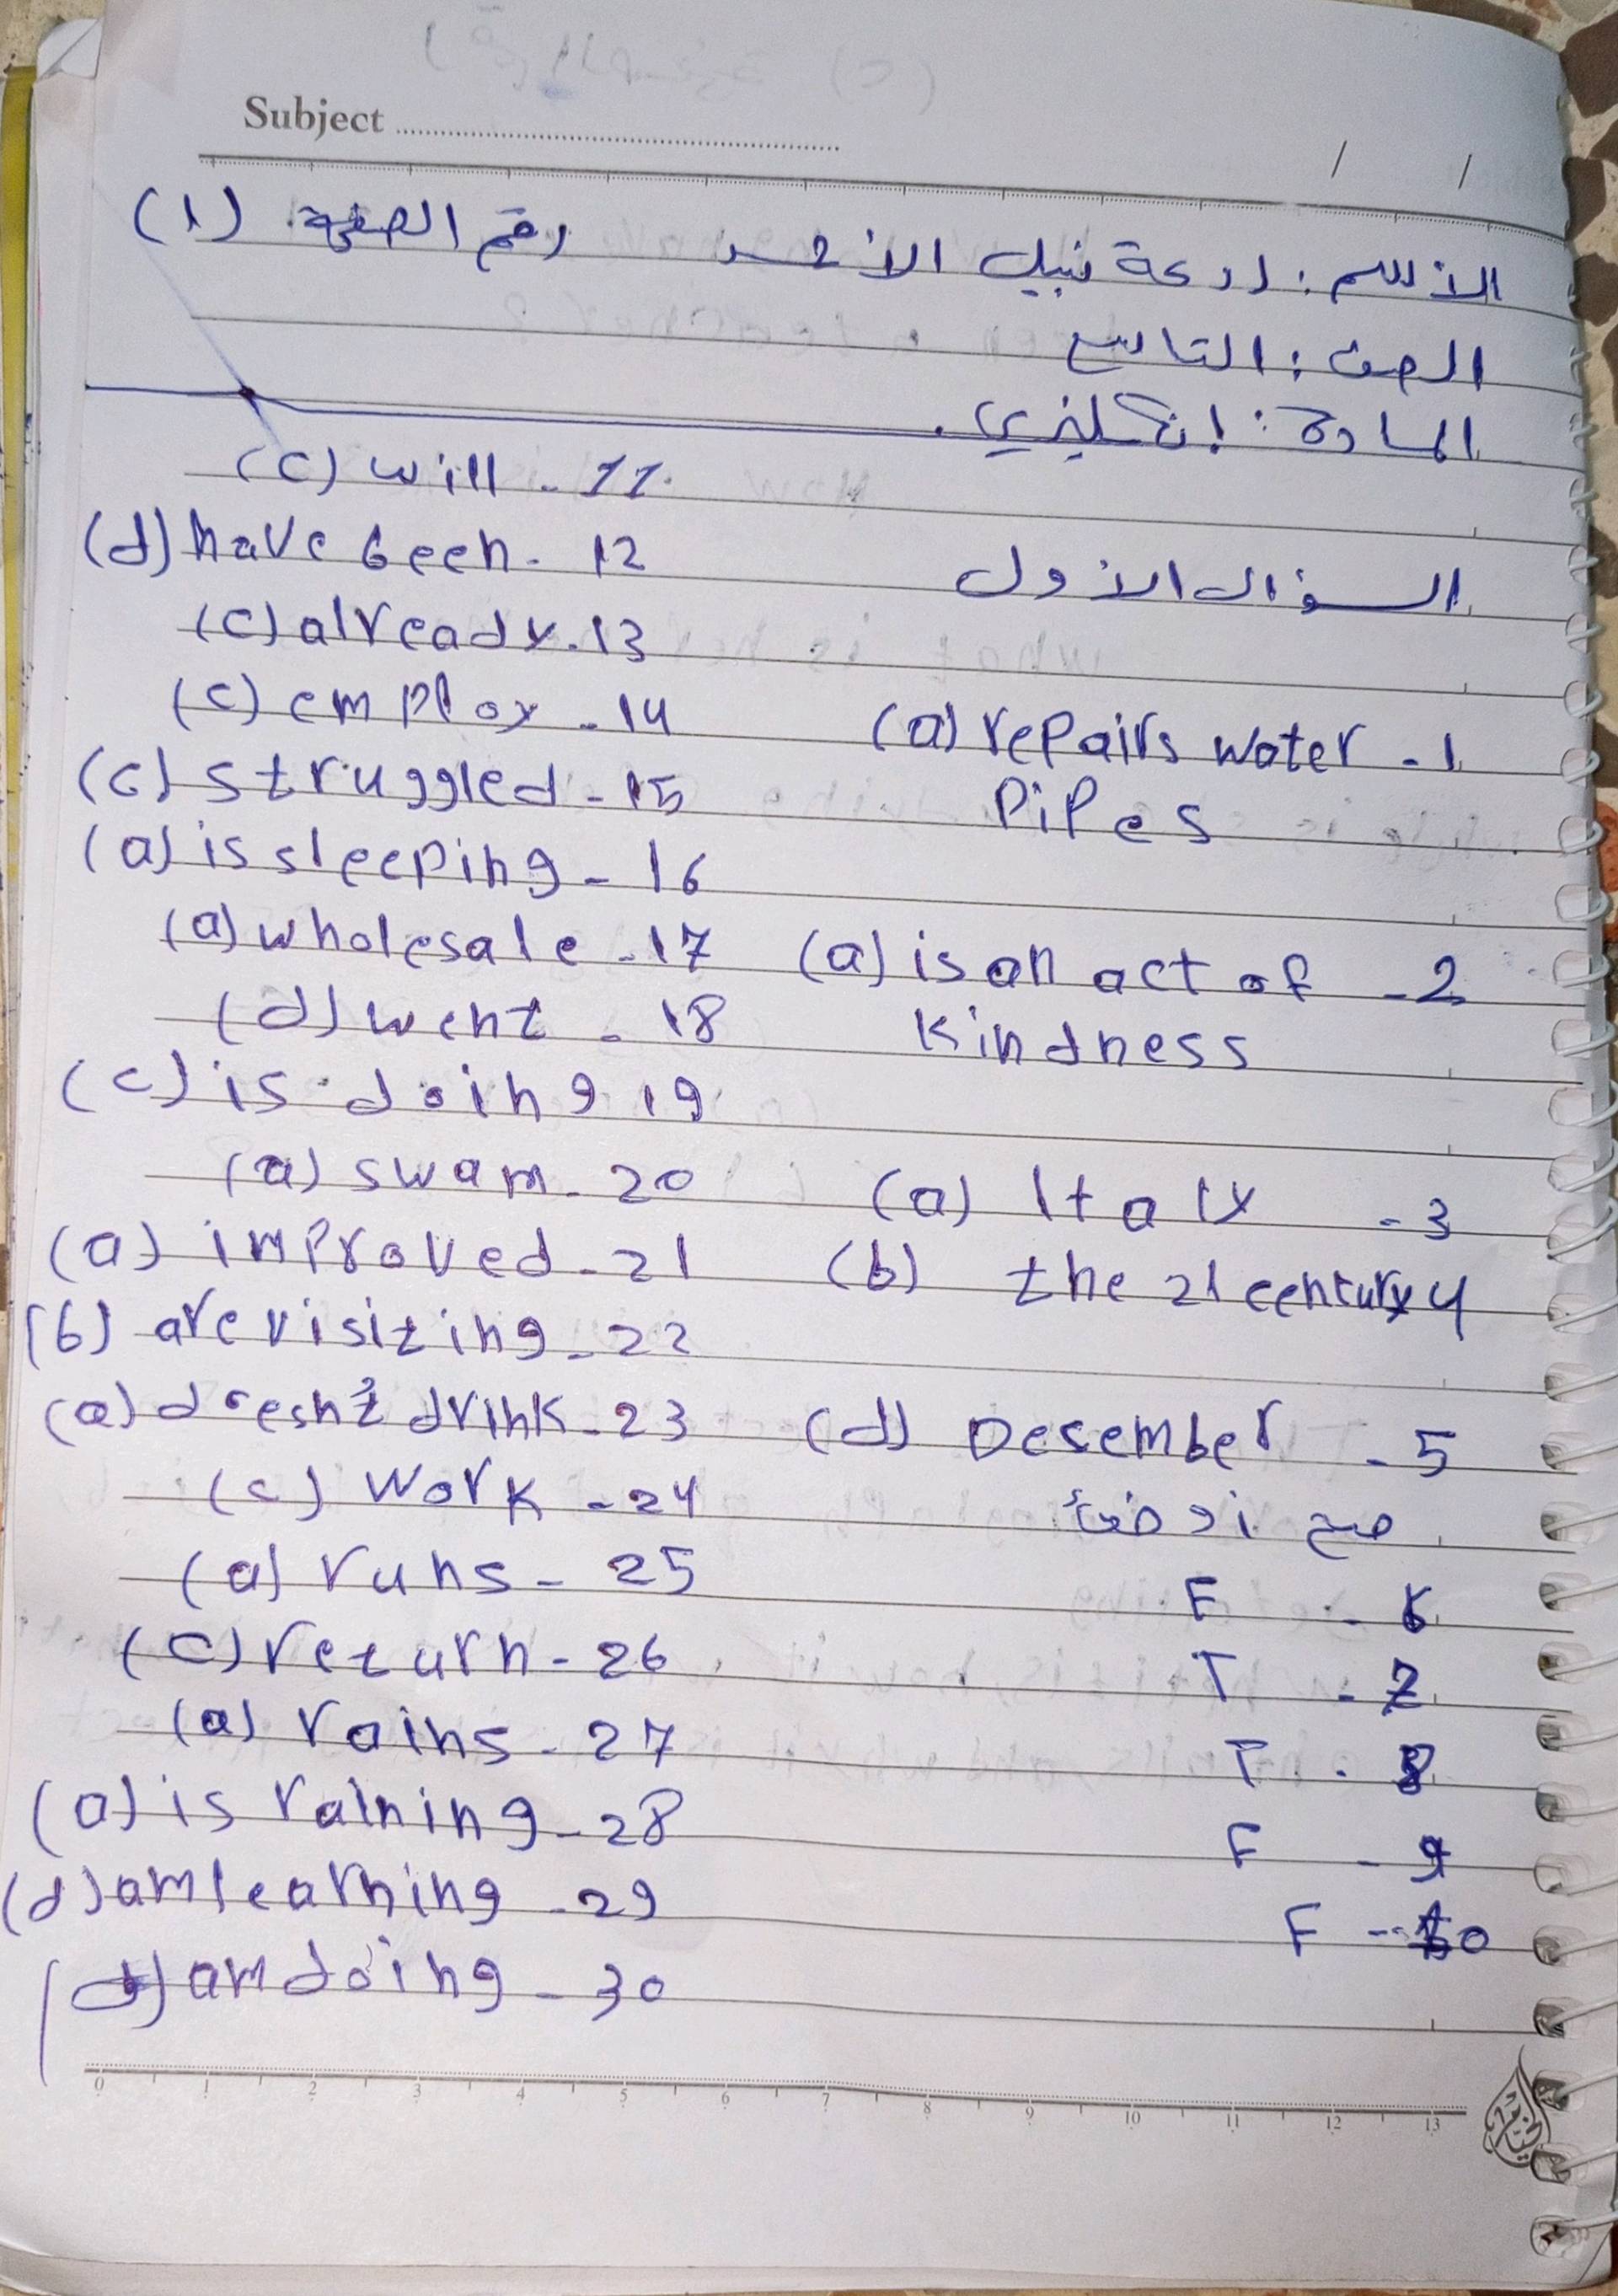 Subject
الأسم : لارعة نبيل الأحمد رقم الصفحة (1)
الصف : التاسع
المادة : إنكليزي.
السؤال الأول
(a) repairs water - 1
Pipes
(a) is an act of - 2
Kindness
(a) Italy - 3
(b) the 21 century 4
(d) Desember - 5
صح أو خطأ
F - 6
T - 7
T - 8
F - 9
F - 10
(c) will - 11
(d) have been - 12
(c) already - 13
(c) employ - 14
(c) struggled - 15
(a) is sleeping - 16
(a) wholesale - 17
(d) went - 18
(c) is doing 19
(a) swam - 20
(a) improved - 21
(b) are visiting - 22
(a) doesn't drink - 23
(c) work - 24
(a) runs - 25
(c) return - 26
(a) rains - 27
(a) is raining - 28
(d) am learning - 29
(d) am doing - 30
0 1 2 3 4 5 6 7 8 9 10 11 12 13
الخيام